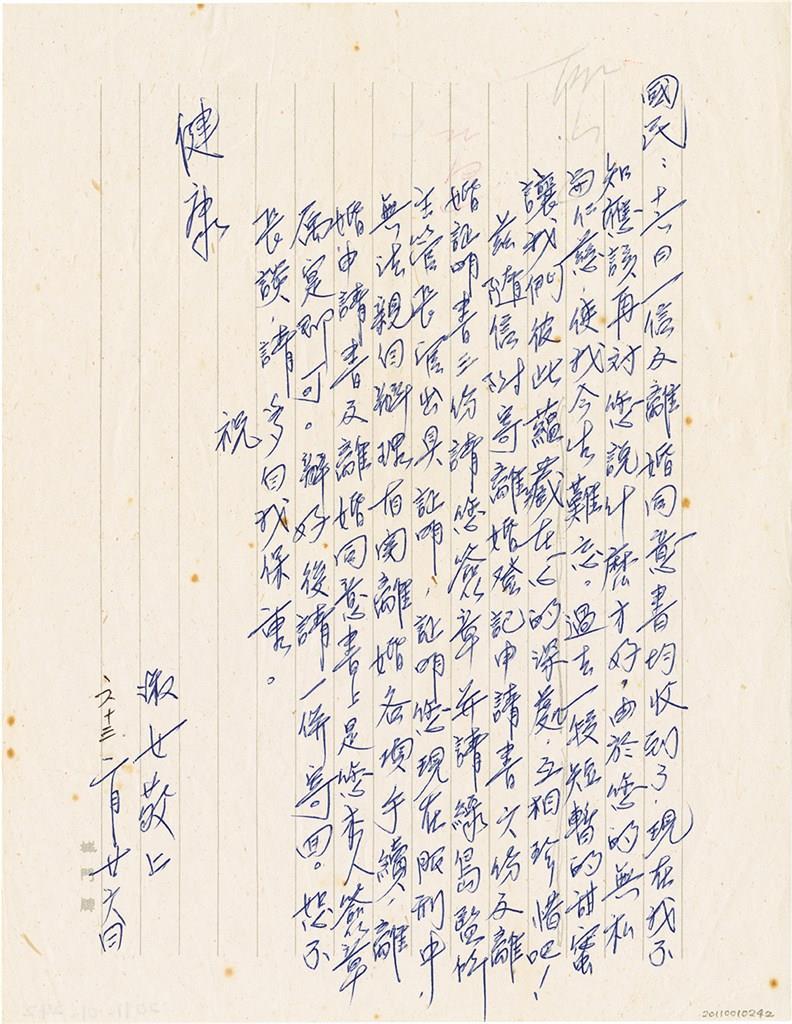 國民：十六日一信及離婚同意書均收到了，現在我不
知應該再對您說什麼才好，由於您的無私
而仁慈，使我今生難忘。過去一段短暫的甜蜜
讓我們彼此蘊藏在心的深處，互相珍惜吧！
茲隨信附寄離婚登記申請書六份及離
婚証明書三份請您簽章並請綠島監所
主管長官出具証明，証明您現在服刑中，
無法親自辦理有関離婚各項手續，離
婚申請書及離婚同意書上是您本人簽章
屬寔即可。辦好後請一併寄回。恕不
長談，請多自我保重。
祝
健康
淑女敬上
六十三、六月廿六日
城門牌
20110010242